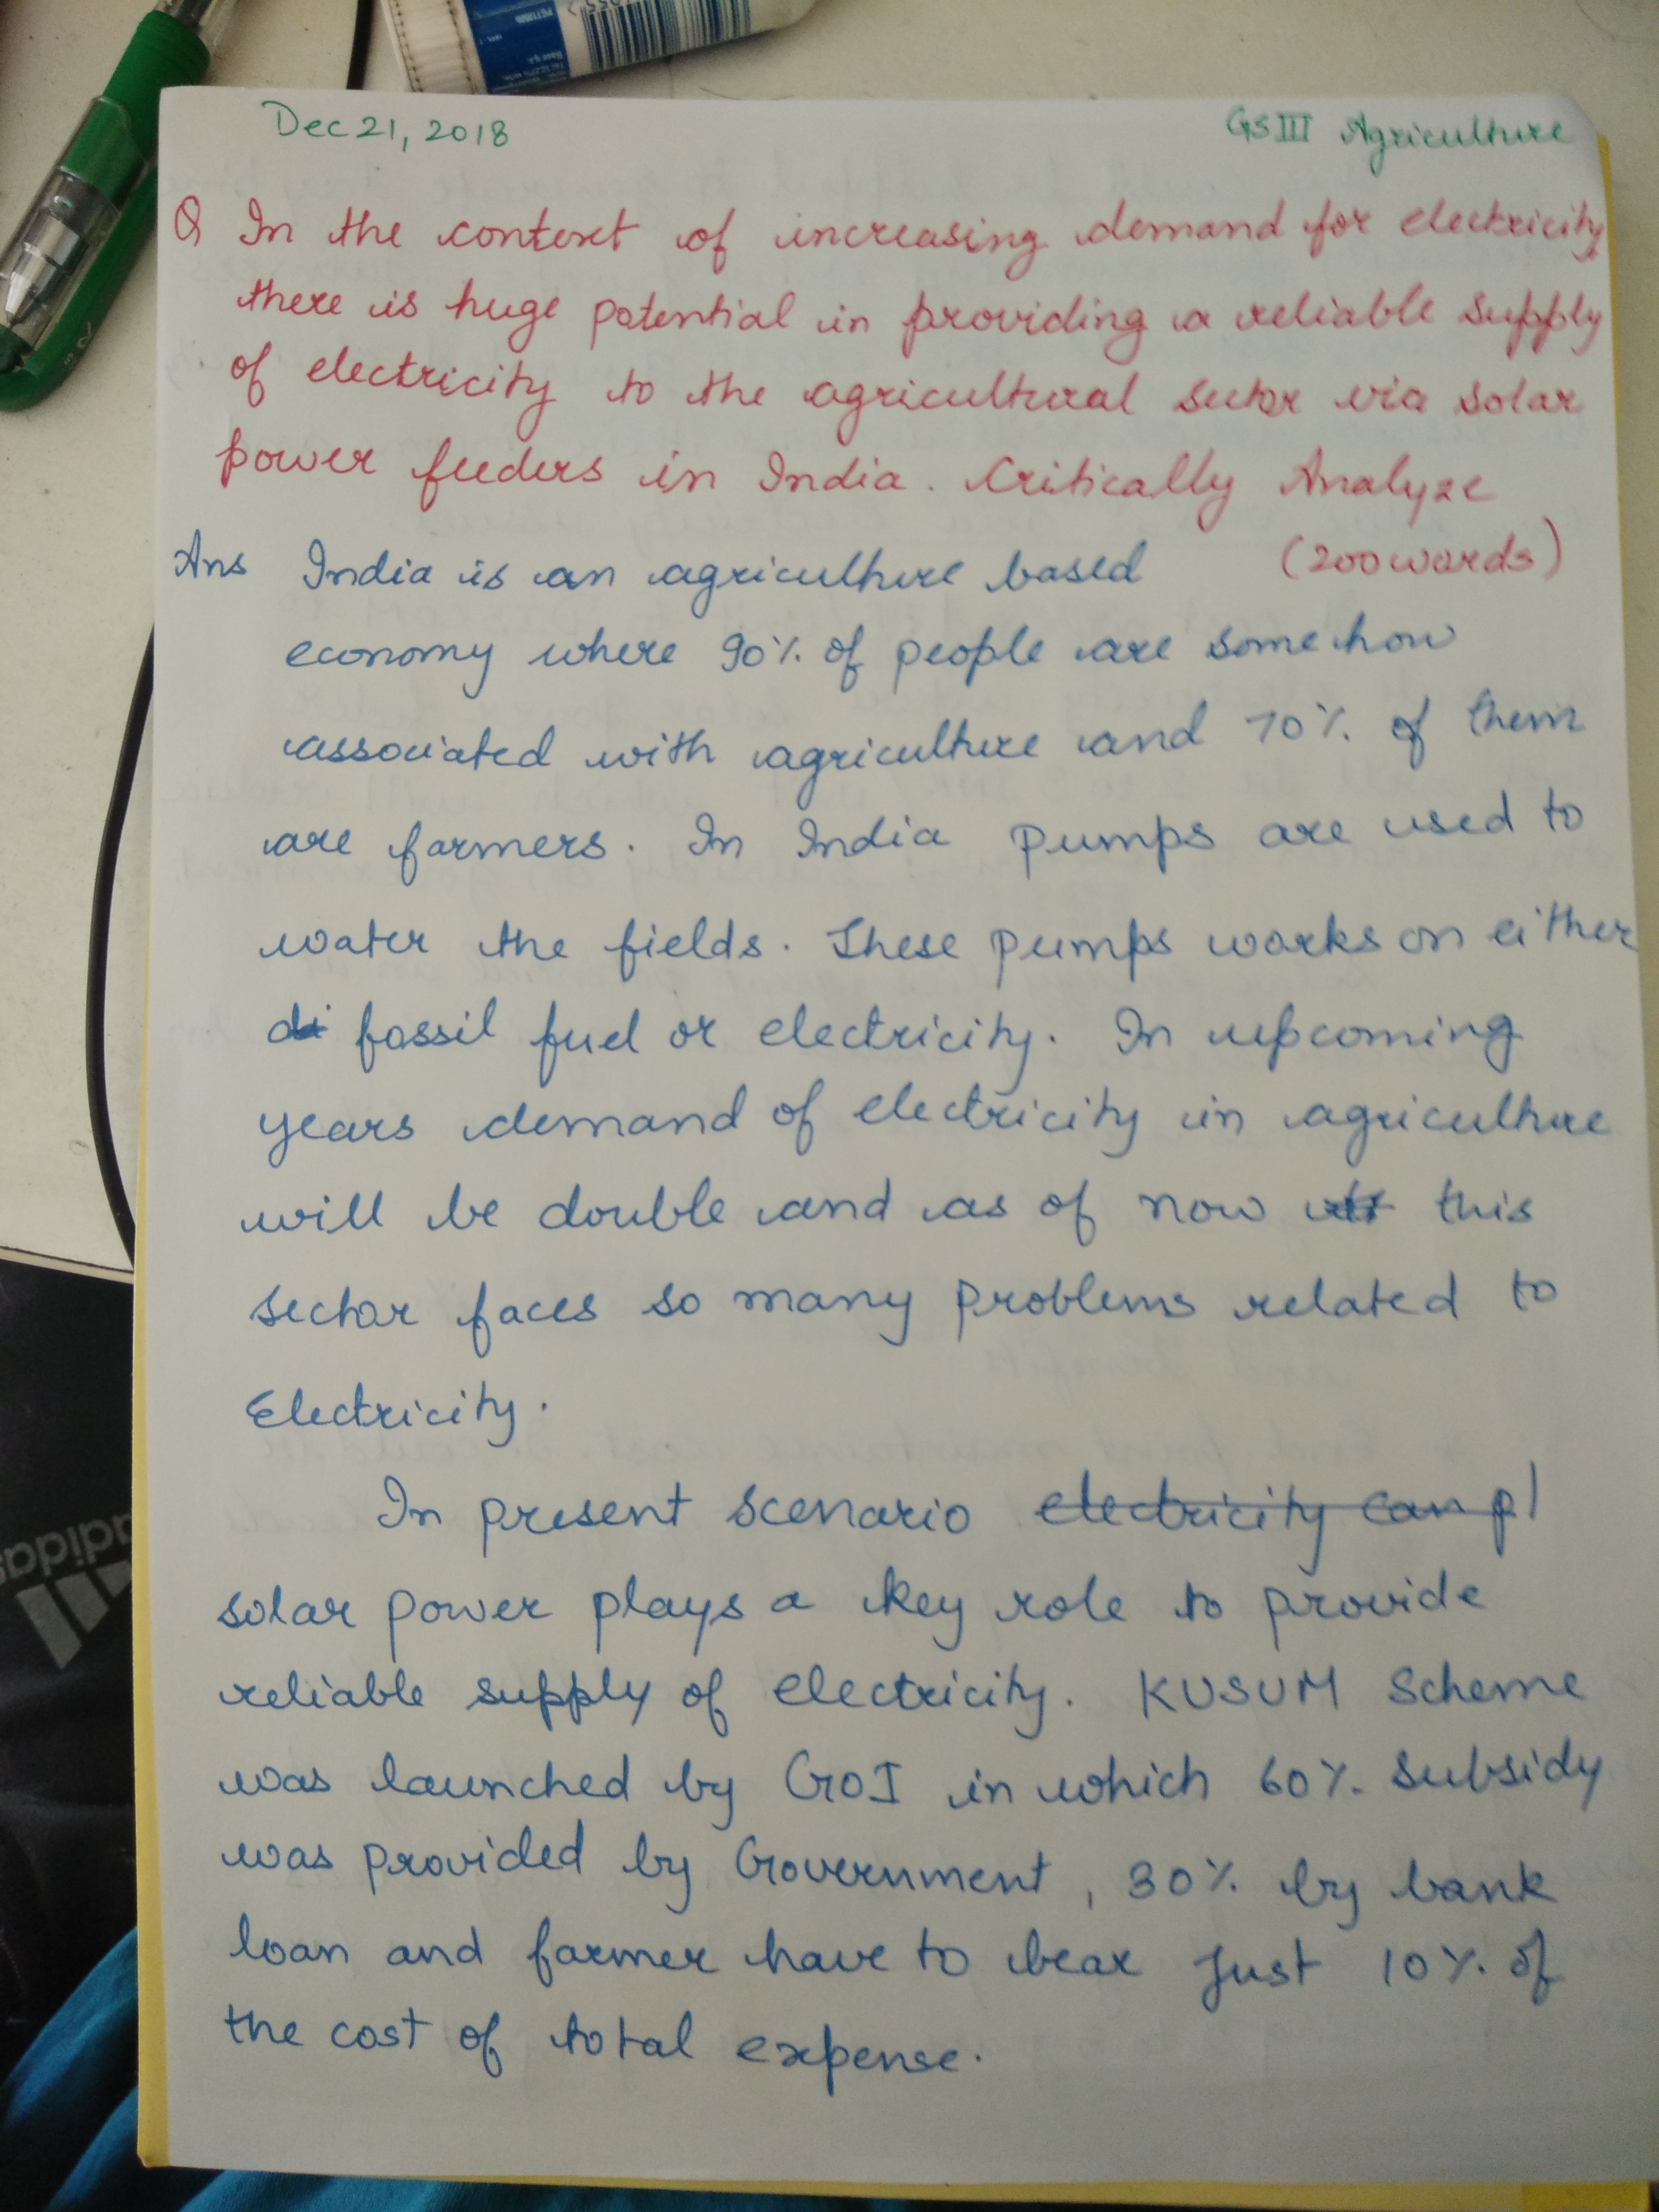 Dec 21, 2018
GS III Agriculture
Q In the context of increasing demand for electricity
there is huge potential in providing a reliable supply
of electricity to the agricultural sector via solar
power feeders in India. Critically Analyze
(200 words)
Ans India is an agriculture based
economy where 90% of people are somehow
associated with agriculture and 70% of them
are farmers. In India pumps are used to
water the fields. These pumps works on either
di fossil fuel or electricity. In upcoming
years demand of electricity in agriculture
will be double and as of now this
sector faces so many problems related to
Electricity.
In present scenario electricity can pl
solar power plays a key role to provide
reliable supply of electricity. KUSUM Scheme
was launched by GoI in which 60% subsidy
was provided by Government, 30% by bank
loan and farmer have to bear just 10% of
the cost of total expense.
adidas